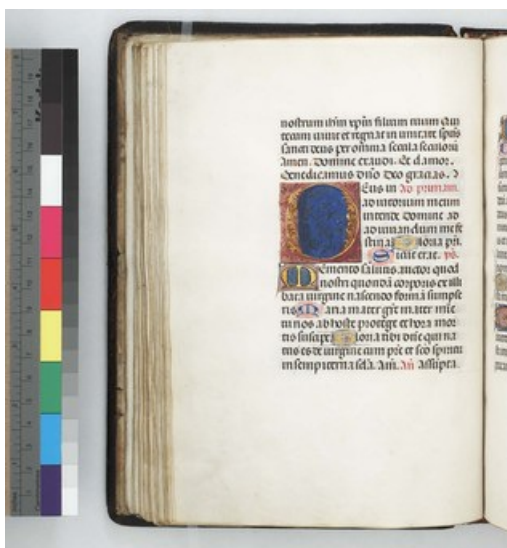 nostrum ihm xpm filium tuum Qui
tecum viuit et regnat in unitate spūs
sancti deus per omnia secula seculorū
Amen. Domine exaudi. Et clamor.
Benedicamus dño Deo gracias.
Deus in ad primam.
adiutorium meum
intende Domine ad
adiuuandum me fe
stina Gloria pri.
Sicut erat. ps.
Memento salutis auctor quod
nostri quondā corporis ex illi
bata uirgine nascendo formā sumpse
ris Maria mater grē mater mie
tu nos ab hoste protege et hora mor
tis suscipe Gloria tibi dñe qui na
tus es de uirgine cum pre et sco spiritu
in sempiterna scla. Am. An Assūpta.